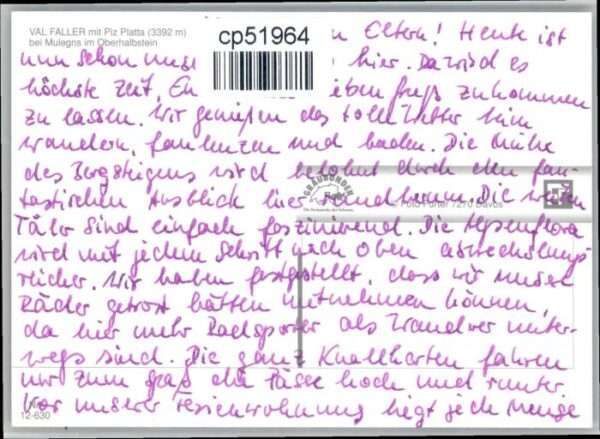 VAL FALLER mit Piz Platta (3392 m)
bei Mulegns im Oberhalbstein
cp51964
n Eltern! Heute ist
nun schon unse hier. Da wird es
höchste Zeit, Eu ieben Gruß zukommen
zu lassen. Wir genießen das tolle Wetter beim
wandern, faulenzen und baden. Die Mühe
des Bergsteigens wird belohnt durch den fan-
tastischen Ausblick hier rundherum. Die
GRAUBÜNDEN
Foto Furter 7270 Davos
Täler sind einfach faszinierend. Die Alpenflora
wird mit jedem Schritt nach oben abwechslungs-
reicher. Wir haben festgestellt, dass wir unsere
Räder getrost hätten mitnehmen können,
da hier mehr Radsportler als Wanderer unter-
wegs sind. Die ganz Knallharten fahren
nur zum Spaß die Pässe hoch und runter
Vor unserer Ferienwohnung liegt jede Menge
12-630